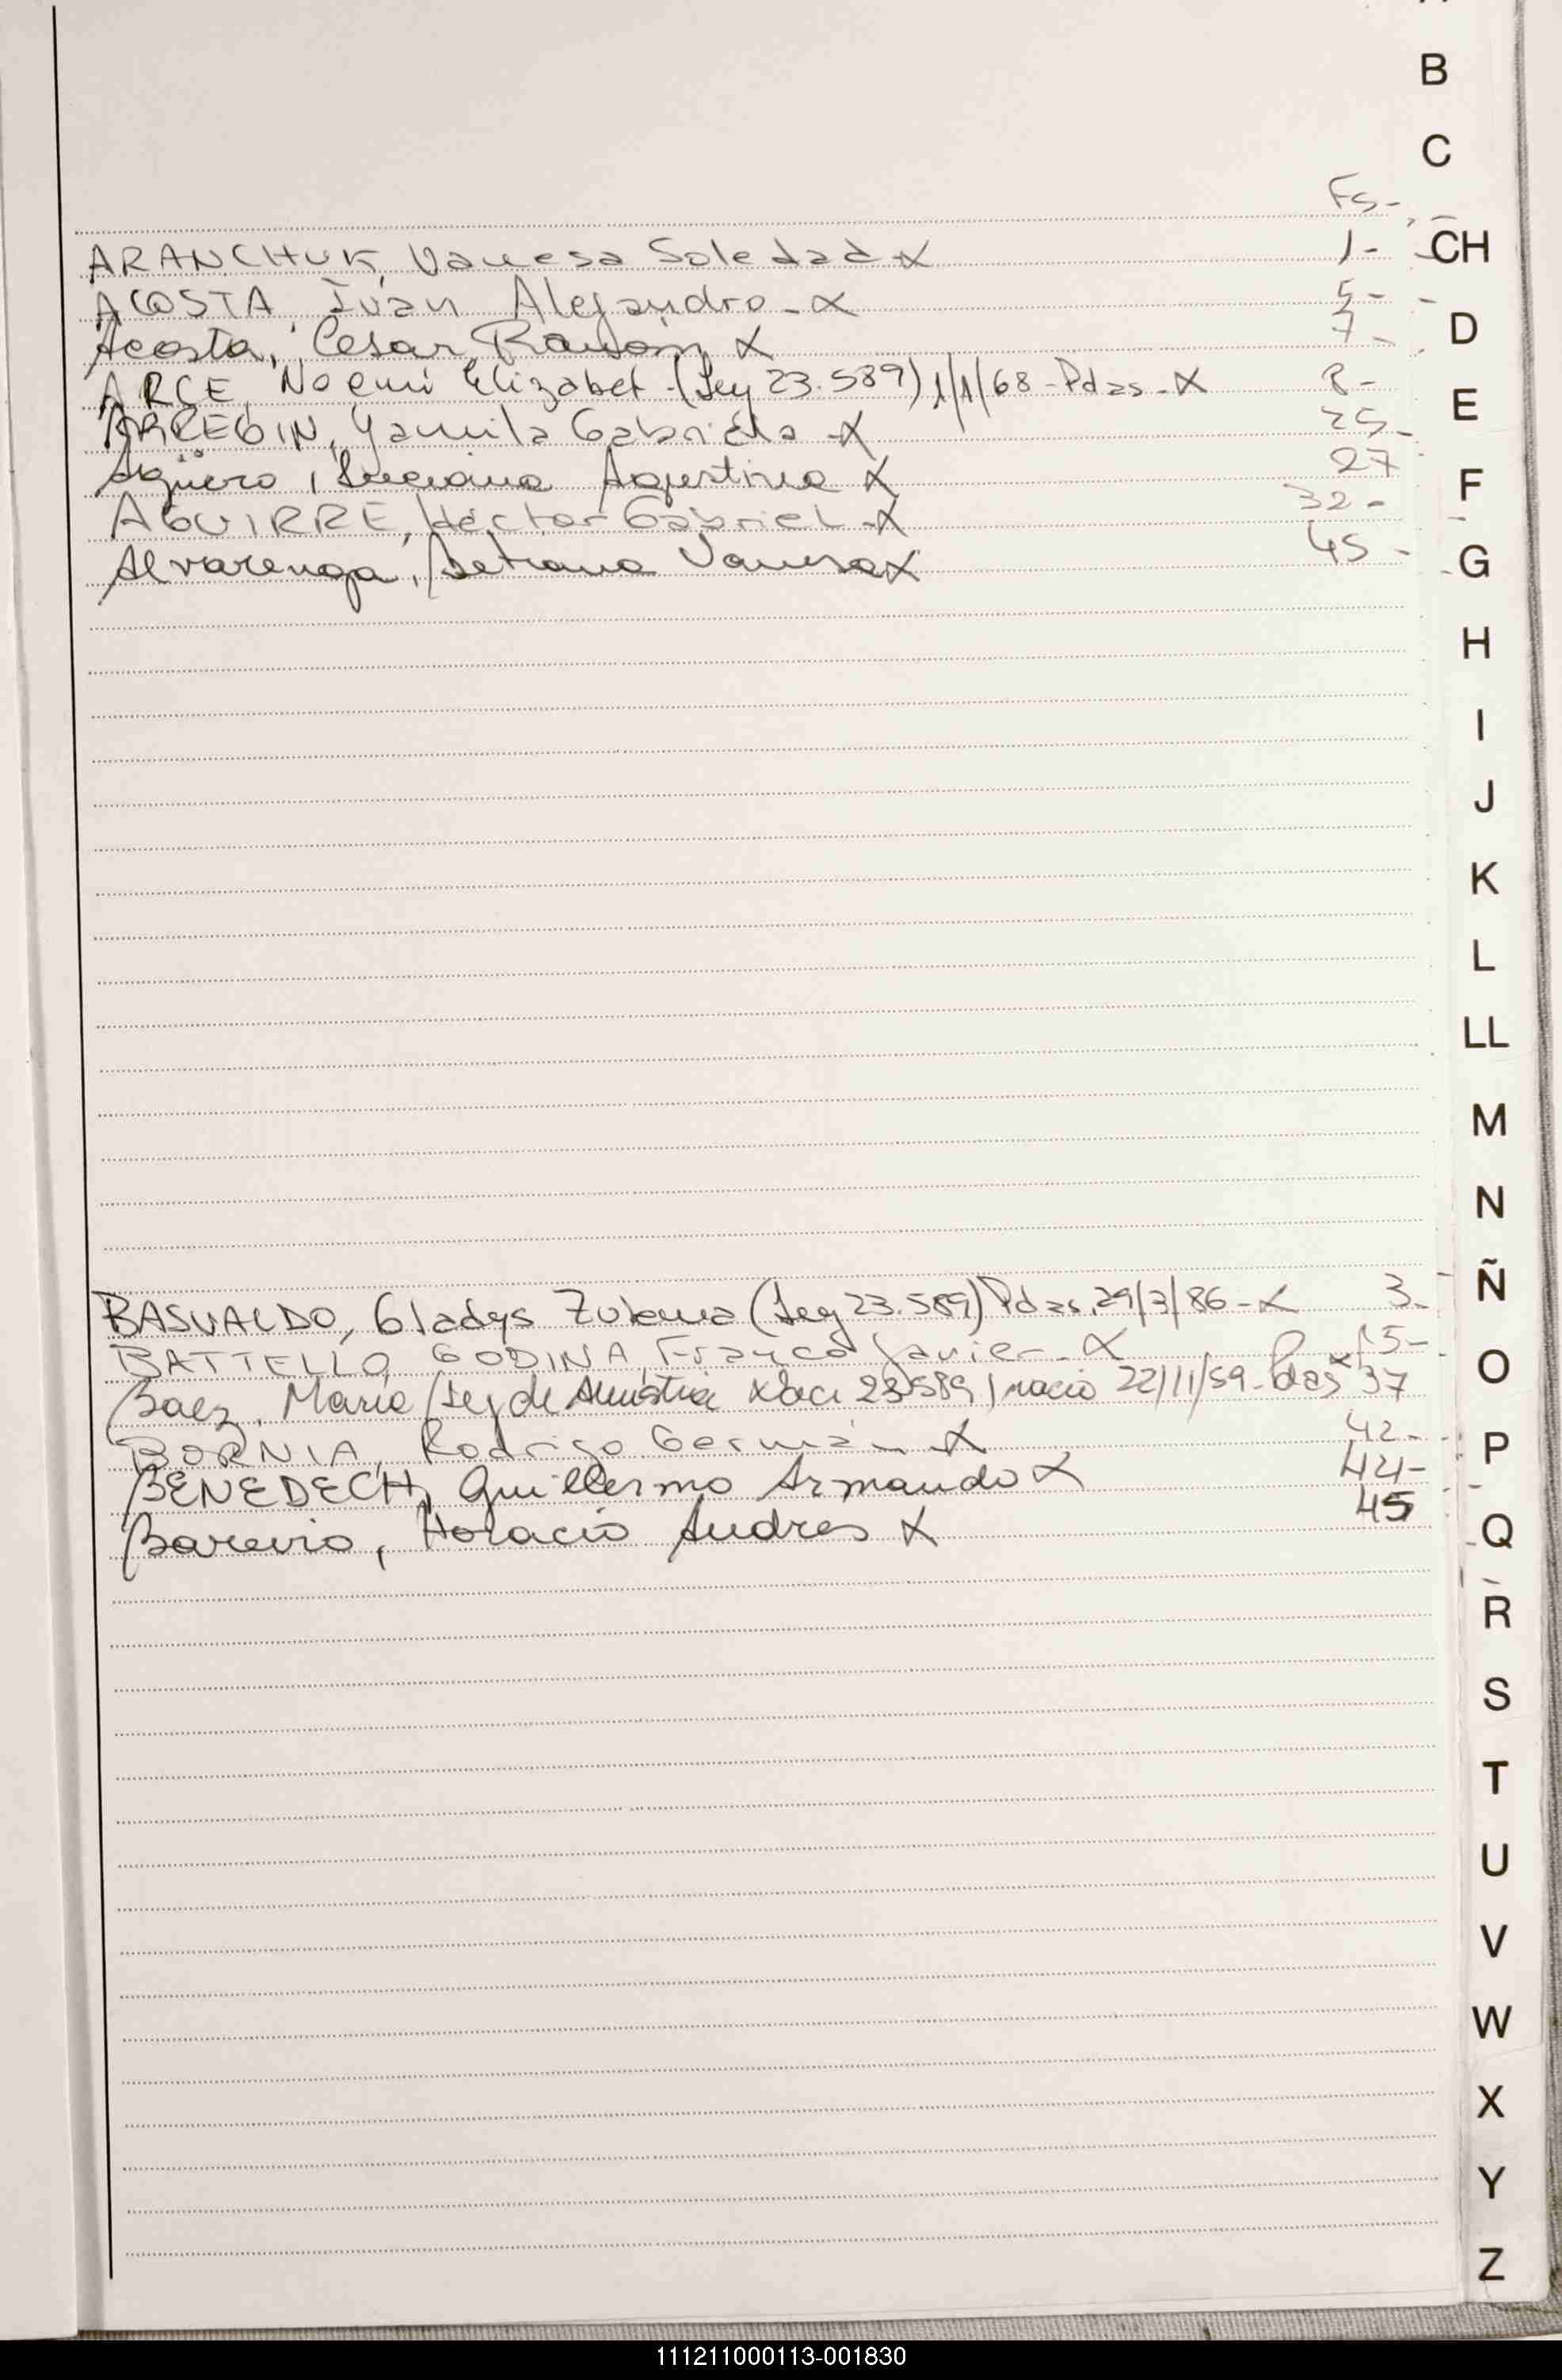 B
C
Fs-
CH
ARANCHUK, Vanesa Soledad x 1-
ACOSTA, Iván Alejandro - x 5-
D
Acosta, Cesar Ramón x 7-
ARCE, Noemi Elizabet - (Ley 23.589) 1/1/68 - Pdas - x 8-
E
ARREGIN, Yamila Gabriela - x 25-
Agüero, Luciana Agustina x 27
F
AGUIRRE, Héctor Gabriel - x 32-
Alvarenga, Betiana Vanesa x 45-
G
H
I
J
K
L
LL
M
N
Ñ
BASUALDO, Gladys Zulema (Ley 23.589) Pdas, 29/3/86 - x 3-
BATTELLO GODINA, Franco Javier - x 15-
O
Baez, Maria (Ley de Amnistia 23589) nació 22/11/59 - Pdas x 37
BORNIA, Rodrigo Germán x 42-
P
BENEDECH, Guillermo Armando x 44-
Horacio Andres x 45
Q
R
S
T
U
V
W
X
Y
Z
111211000113-001830